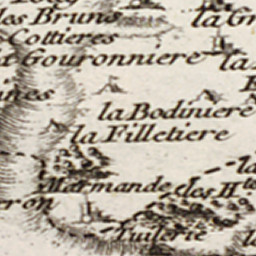 les Bruns
la G
Cottieres
Gouronniere
la
nnes
la Bodiniere
la Filletiere
la
Marmande
les H.te
eron
Tuilerie
l